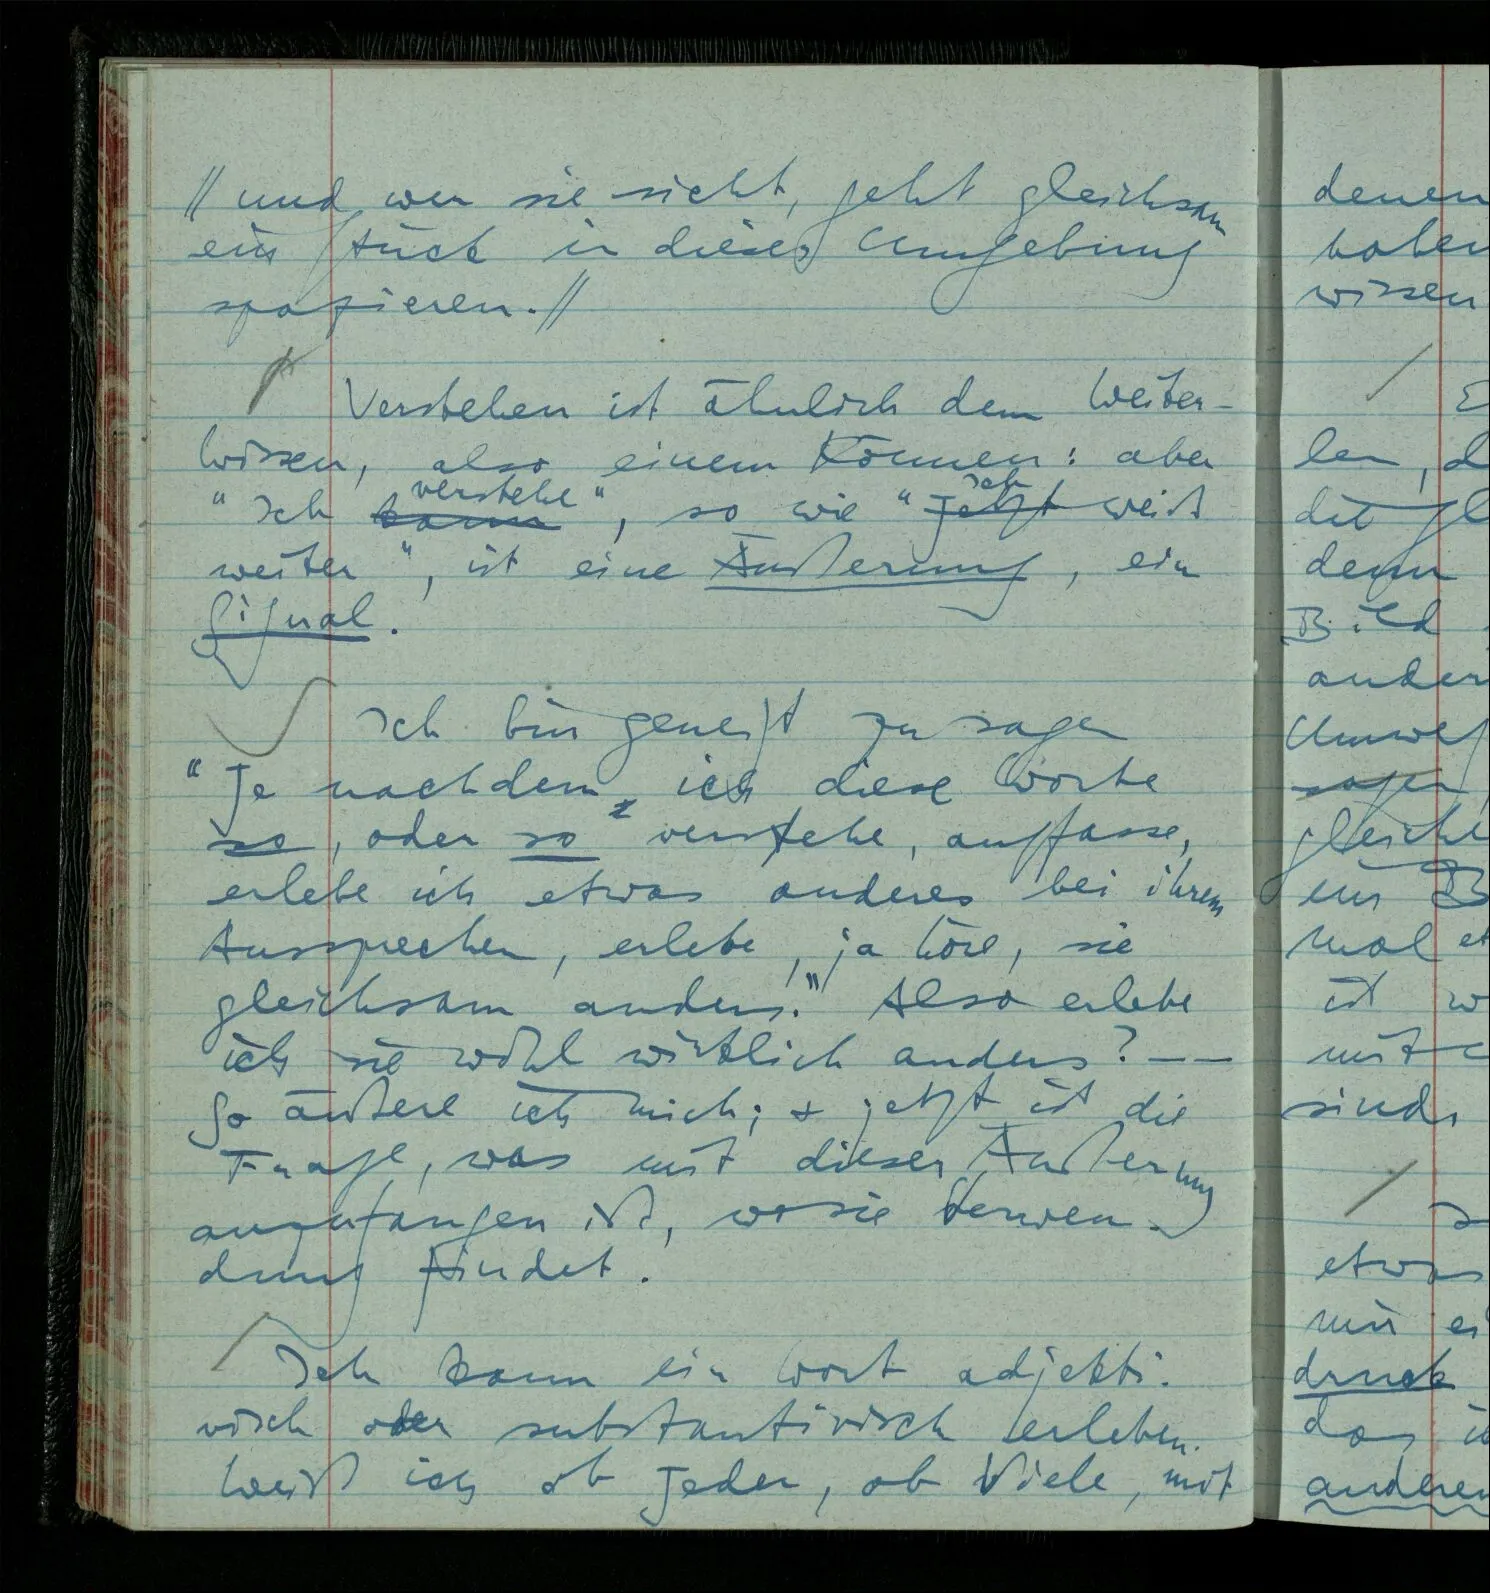 // und wer sie sieht, geht gleichsam
ein Stück in dieser Umgebung
spazieren. //
Verstehen ist ähnlich dem Weiter-
wissen, also einem Können: aber
"Ich kann verstehe", so wie "Jetzt ich weiß
weiter", ist eine Äußerung, ein
Signal.
Ich bin geneigt zu sagen
"Je nachdem ich diese Worte
so, oder so verstehe, auffasse,
erlebe ich etwas anderes bei ihrem
Aussprechen, erlebe, ja höre, sie
gleichsam anders." Also erlebe
ich sie wohl wirklich anders? — —
So äußere ich mich; & jetzt ist die
Frage, was mit dieser Äußerung
anzufangen ist, wo sie Verwen-
dung findet.
Ich kann ein Wort adjekti-
visch oder substantivisch erleben.
Weiß ich ob Jeder, ob Viele, mit
denen
haben
wissen
len, d
dit gl
denn
Bild
ander
Umwe
sagen,
gleich
ein B
mal et
ist w
mit
sind,
etwas
mir ei
druck
das i
anderen